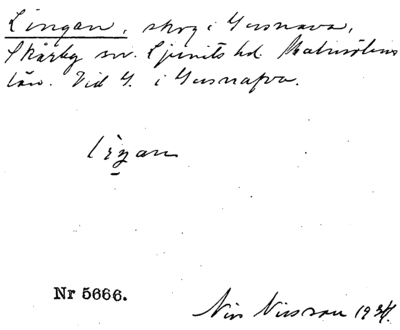 Lingan, skog i Gusnava,
Skårby sn. Ljunits hd. Malmöhus
län. Vid G. i Gusnafva.
Nr 5666.
Nils Nilsson 1934.